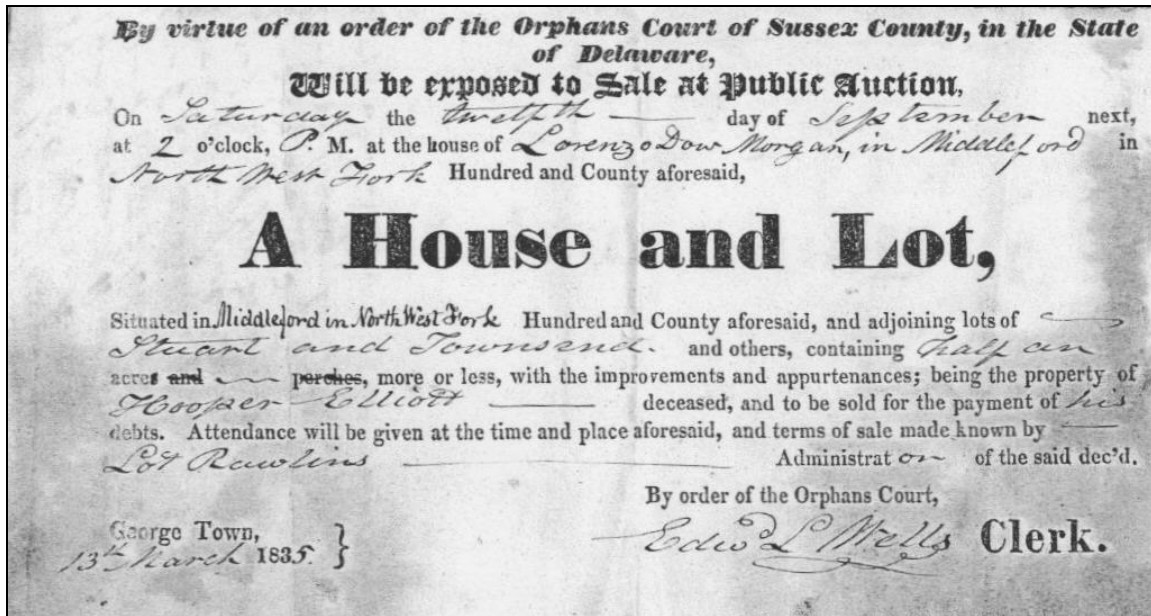 By virtue of an order of the Orphans Court of Sussex County, in the State
of Delaware,
Will be exposed to Sale at Public Auction,
On Saturday the twelfth day of September next,
at 2 o'clock, P. M. at the house of Lorenzo Dow Morgan, in Middleford in
North West Fork Hundred and County aforesaid,
A House and Lot,
Situated in Middleford in North West Fork Hundred and County aforesaid, and adjoining lots of
Stuart and Townsend. and others, containing half an
acres and perches, more or less, with the improvements and appurtenances; being the property of
Hooper Elliott deceased, and to be sold for the payment of his
debts. Attendance will be given at the time and place aforesaid, and terms of sale made known by
Lot Rawlins Administrat or of the said dec'd.
By order of the Orphans Court,
George Town,
13th March 1835. }
Edwd L Wells Clerk.